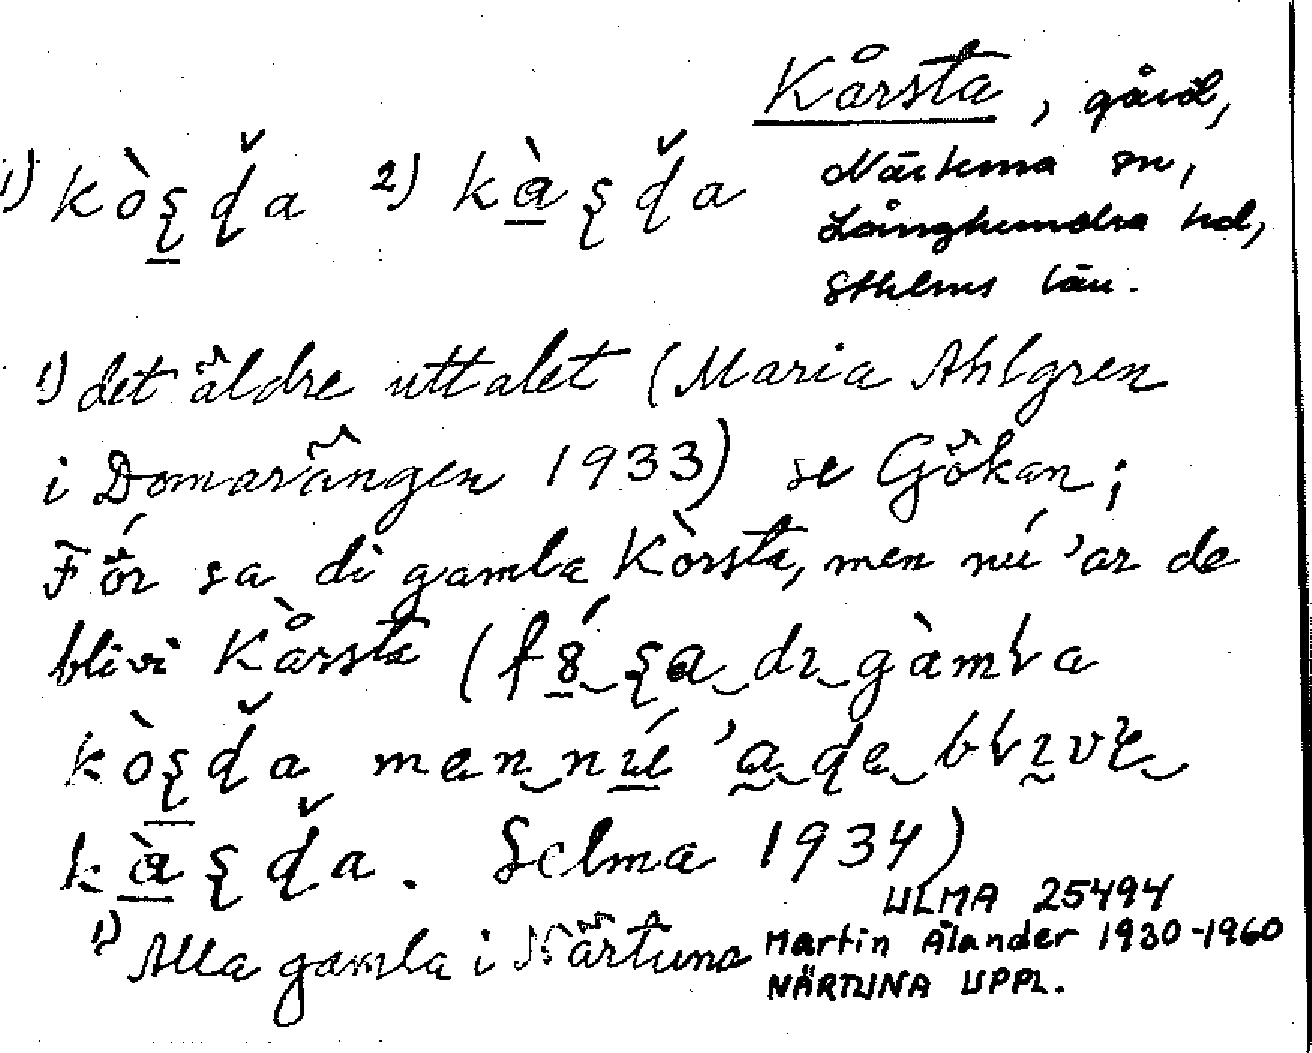 Kårsta, gård,
Närtuna sn,
Långhundra hd,
Sthlms län.
1) kòʂɖa 2) kàʂɖa
1) det äldre uttalet (Maria Ahlgren
i Domarängen 1933) se Gökan;
Fór sa di gamla Kòrsta, men nú 'ar de
blivi Kårsta (fǿ ʂa dɪ gàmla
kòʂɖa men nú 'a ɖe blɪvɪ
kàʂɖa. Selma 1934)
1) Alla gamla i Närtuna
ULMA 25494
Martin Ålander 1930-1960
NÄRTUNA UPPL.